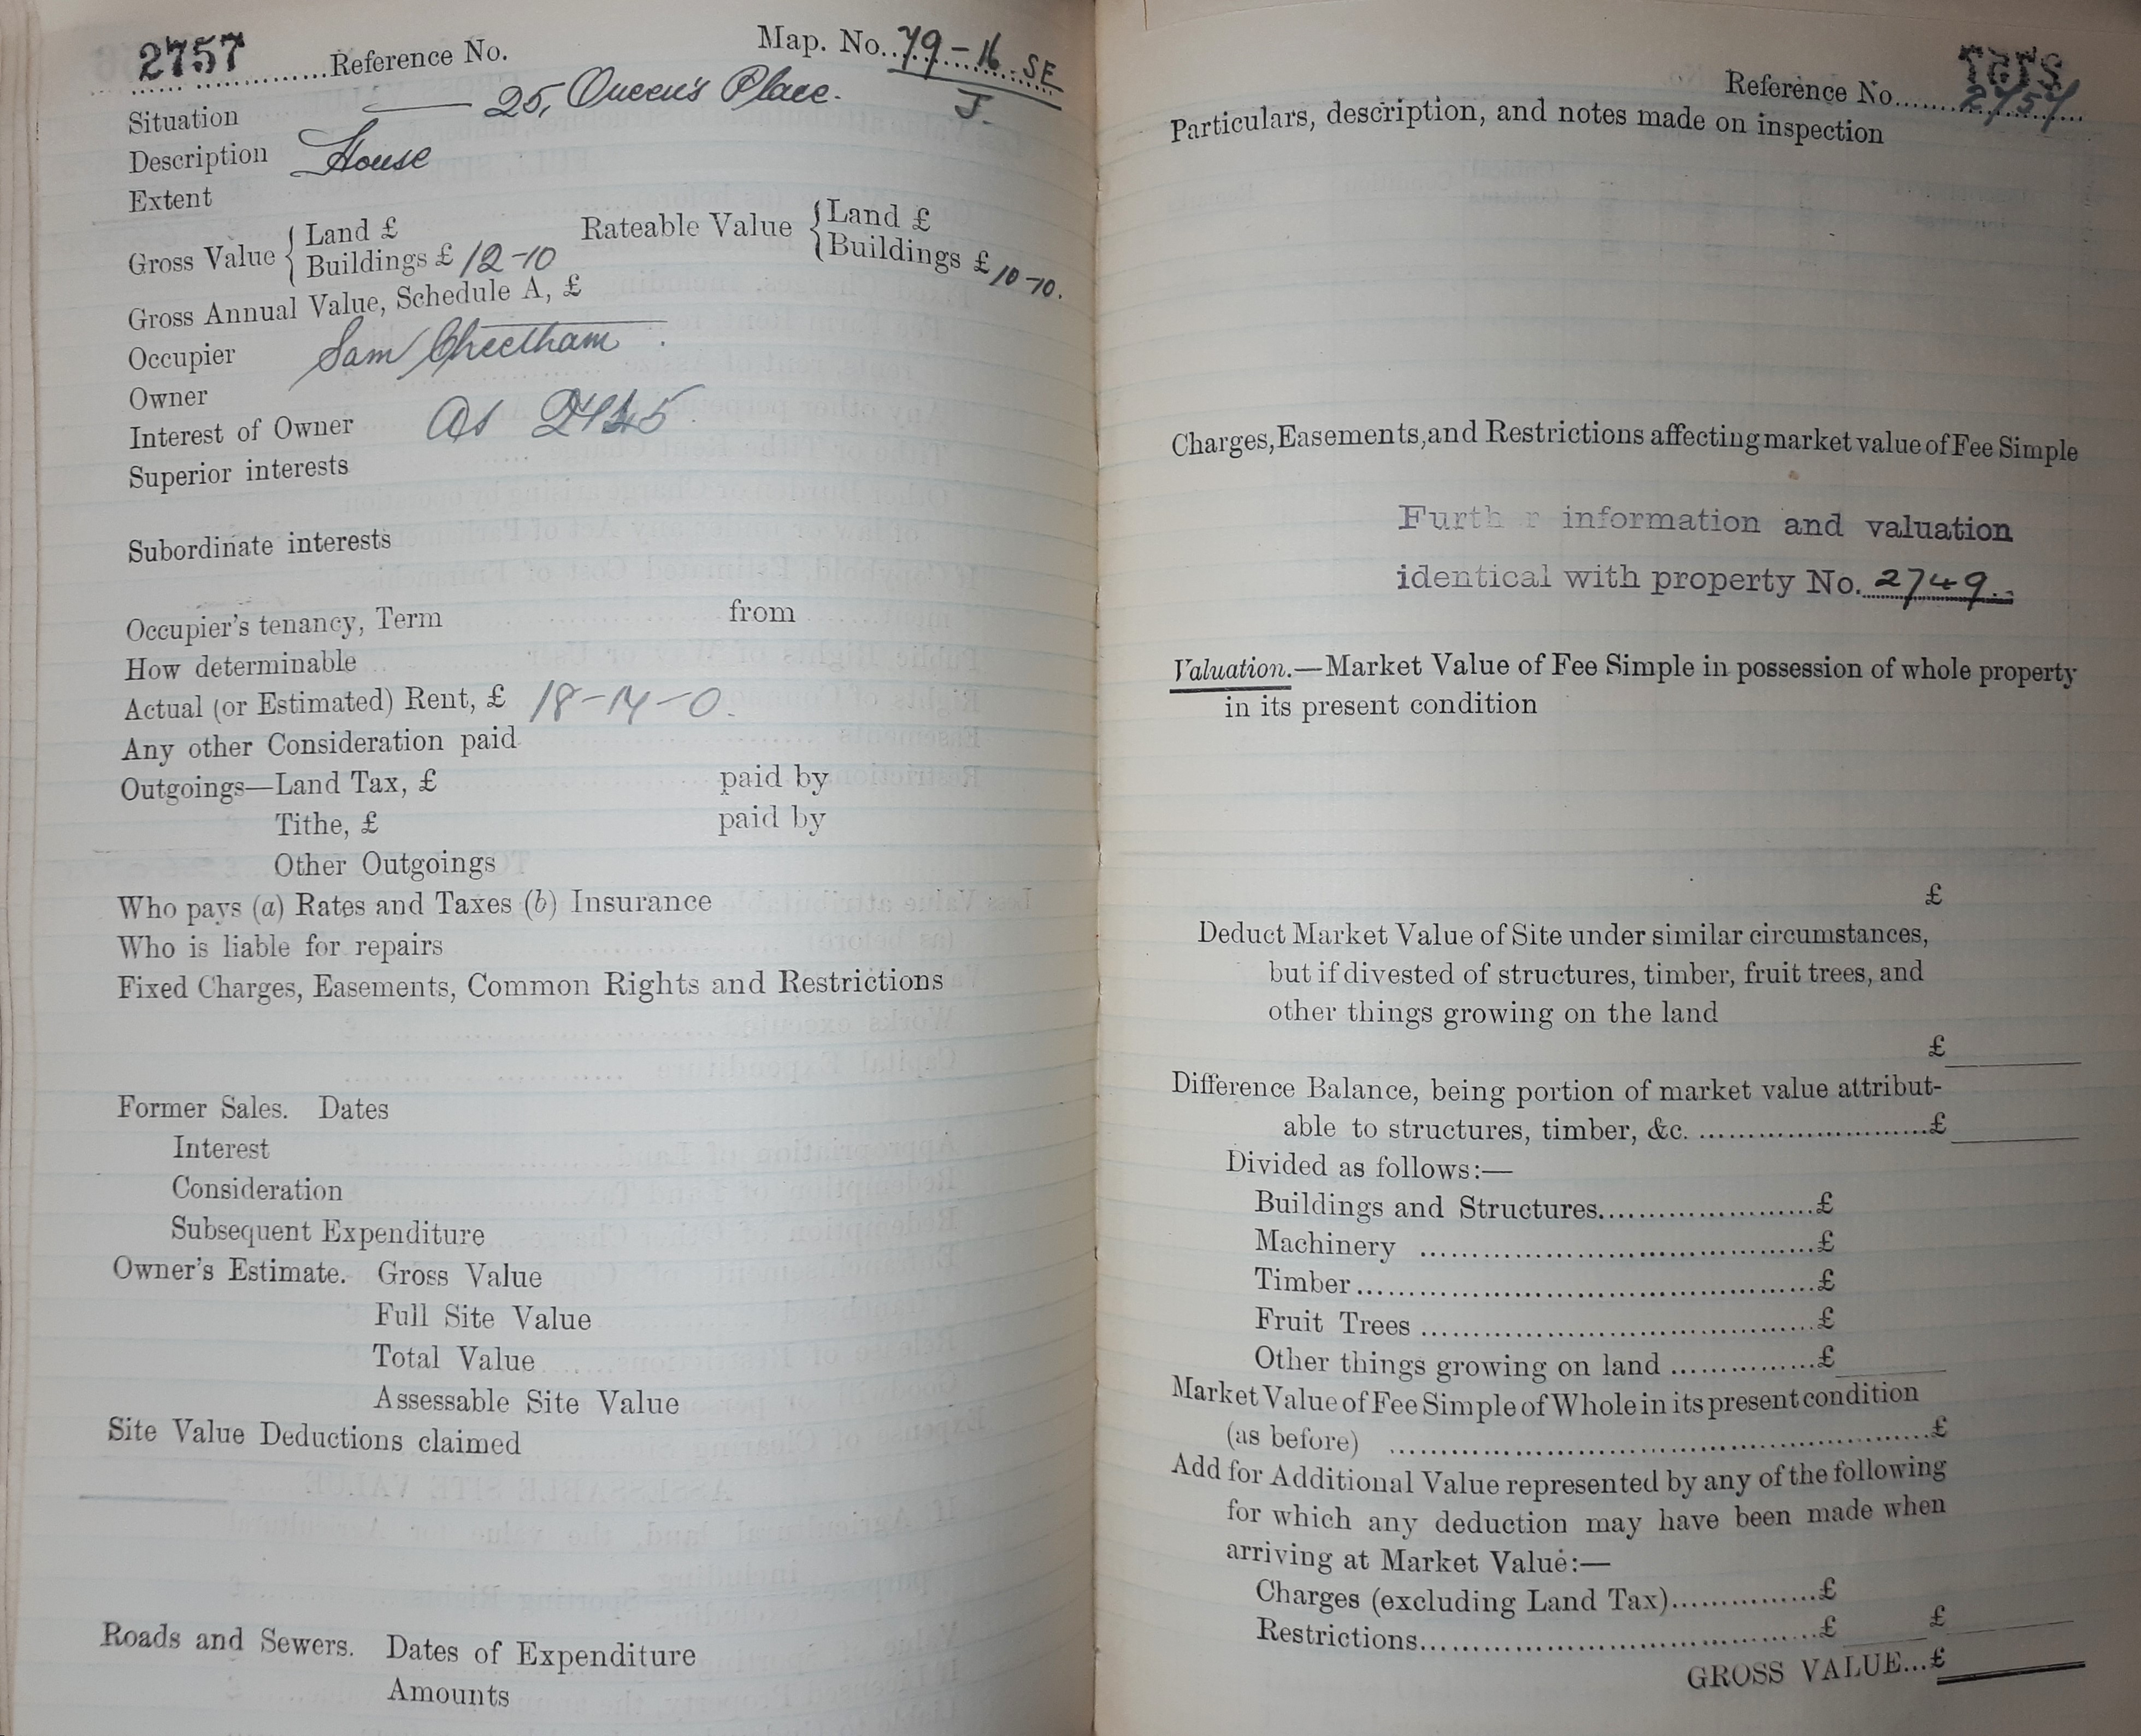 2757 Reference No. Map. No. 79-16 SE
J.
Situation 25, Queen's Place.
Description House
Extent
Gross Value { Land £
Buildings £ 12-10
Rateable Value { Land £
Buildings £ 10-10.
Gross Annual Value, Schedule A, £
Occupier Sam Cheetham.
Owner
Interest of Owner As
Superior interests
Subordinate interests
Occupier's tenancy, Term from
How determinable
Actual (or Estimated) Rent, £ 18-14-0.
Any other Consideration paid
Outgoings—Land Tax, £ paid by
Tithe, £ paid by
Other Outgoings
Who pays (a) Rates and Taxes (b) Insurance
Who is liable for repairs
Fixed Charges, Easements, Common Rights and Restrictions
Former Sales. Dates
Interest
Consideration
Subsequent Expenditure
Owner's Estimate. Gross Value
Full Site Value
Total Value
Assessable Site Value
Site Value Deductions claimed
Roads and Sewers. Dates of Expenditure
Amounts
Reference No. 2757
Particulars, description, and notes made on inspection
Charges, Easements, and Restrictions affecting market value of Fee Simple
Furth r information and valuation
identical with property No. 2749.
Valuation.—Market Value of Fee Simple in possession of whole property
in its present condition
£
Deduct Market Value of Site under similar circumstances,
but if divested of structures, timber, fruit trees, and
other things growing on the land
£
Difference Balance, being portion of market value attribut-
able to structures, timber, &c. £
Divided as follows:—
Buildings and Structures £
Machinery £
Timber £
Fruit Trees £
Other things growing on land £
Market Value of Fee Simple of Whole in its present condition
(as before) £
Add for Additional Value represented by any of the following
for which any deduction may have been made when
arriving at Market Value:—
Charges (excluding Land Tax) £
Restrictions £ £
GROSS VALUE...£